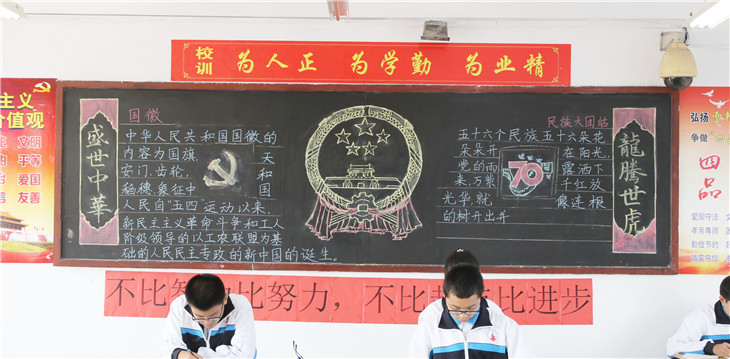 校训 为人正 为学勤 为业精
主义
价值观
文明
平等
爱国
友善
盛世中华
国徽
中华人民共和国国徽的
内容为国旗、天
安门、齿轮、和
稻穗象征中国
人民自“五四”运动以来，
新民主主义革命斗争和工人
阶级领导的以工农联盟为基
础的人民民主专政的新中国的诞生。
民族大团结
五十六个民族五十六朵花
朵朵开 在阳光，
党的雨 露洒下
来万紫 千红放
光华就 像连根
的树开出开
70
龍騰世虎
弘扬
争做
四
品
爱国守法
孝亲尊师
勤俭节约
诚实守信
不比 比努力，不比 比进步